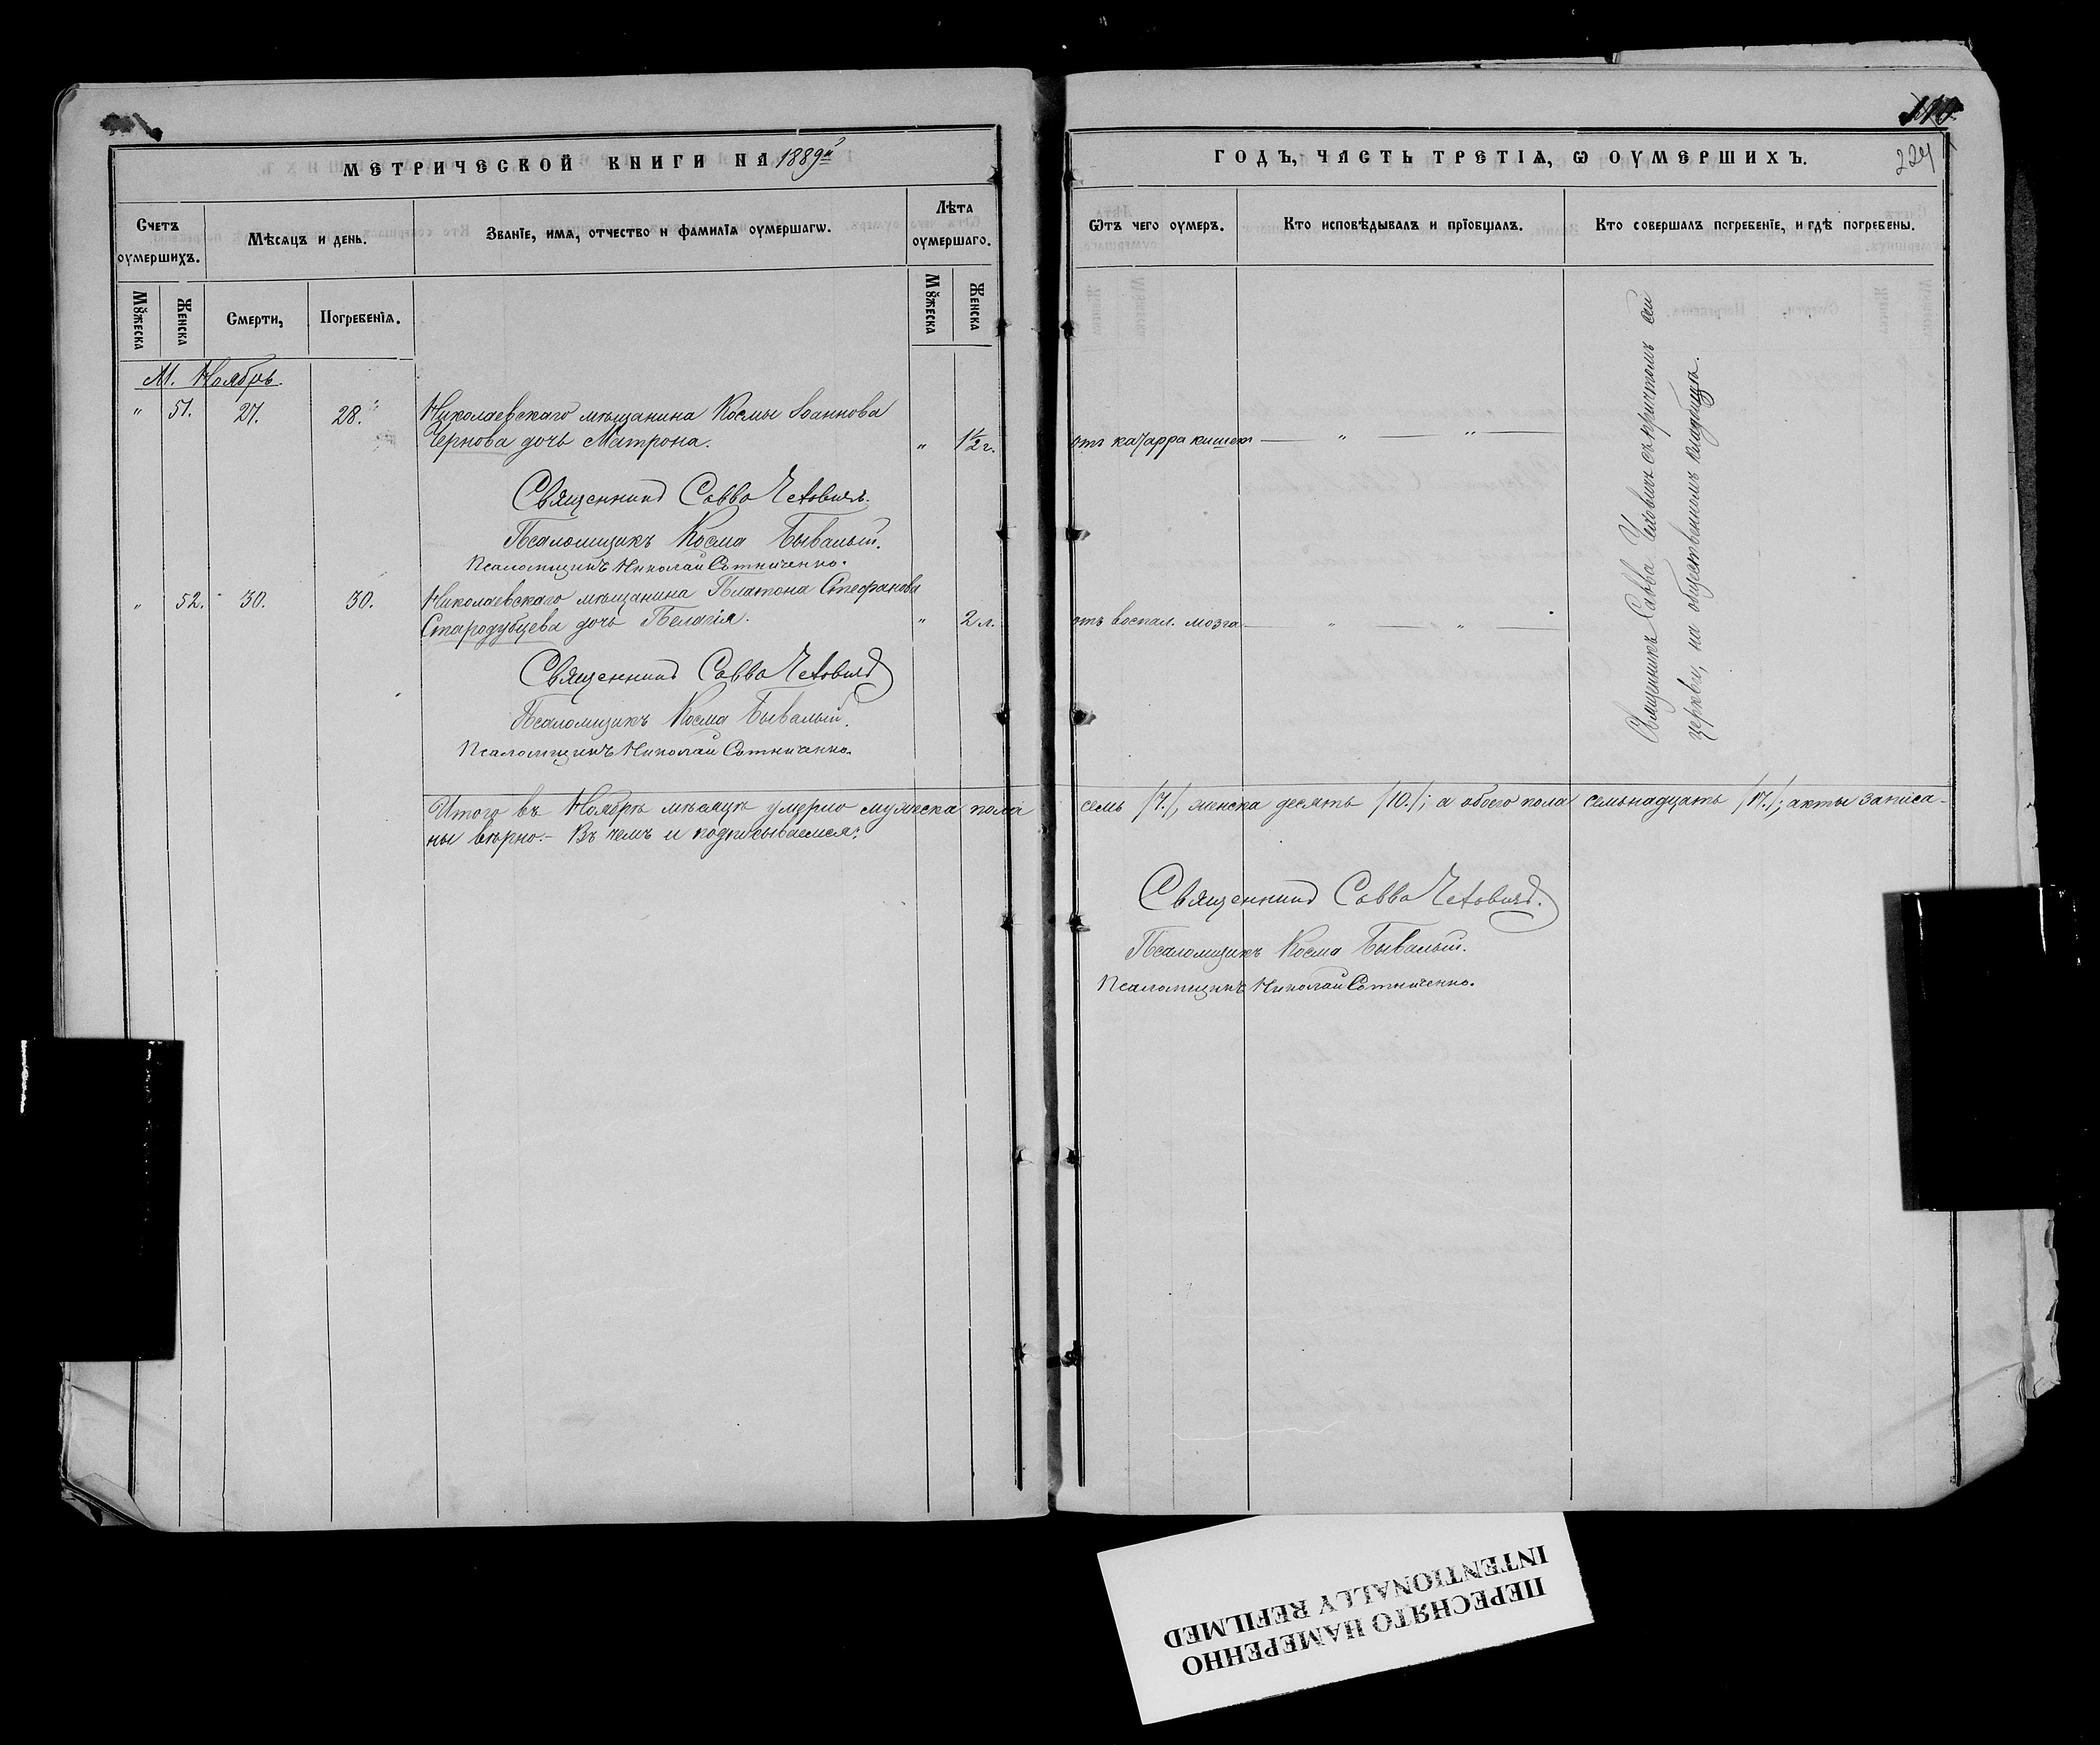 МЕТРИЧЕСКОЙ КНИГИ НА 1889й
Счетъ оумершихъ.
Мѣсяцъ и день.
Званїе, имѧ, отчество и фамилїѧ оумершагѡ.
Лѣта оумершаго.
Мꙋжеска
Женска
Смерти,
Погребенїѧ.
Мꙋжеска
Женска
М. Ноябрь.
" 51. 27. 28. Николаевскаго мѣщанина Космы Іоаннова
Чернова дочь Матрона. " 1½ г.
Священникъ Савва Чехович.
Псаломщикъ Косма Бывалый.
Псаломщикъ Николай Сотниченко.
" 52. 30. 30. Николаевскаго мѣщанина Платона Стефанова
Стародубцева дочь Пелагія. " 2 л.
Священникъ Савва Чеховичъ
Псаломщикъ Косма Бывалый.
Псаломщикъ Николай Сотниченко.
Итого въ Ноябрѣ мѣсяцѣ умерло мужеска пола
ны вѣрно. – Въ чемъ и подписываемся:
224
ГОДЪ, ЧАСТЬ ТРЕТІѦ, Ѡ ОУМЕРШИХЪ.
Ѿтъ чего оумеръ.
Кто исповѣдывалъ и прїобщалъ.
Кто совершалъ погребенїе, и гдѣ погребены.
отъ катарра кишекъ " "
отъ воспал. мозга " "
Священникъ Савва Чеховичъ съ причтомъ сей
церкви, на общественномъ кладбищѣ.
семь /7./, женска десять /10./; а обоего пола семьнадцать /17./; акты записа-
Священникъ Савва Чеховичъ.
Псаломщикъ Косма Бывалый.
Псаломщикъ Николай Сотниченко.
ПЕРЕСНЯТО НАМЕРЕННО
INTENTIONALLY REFILMED